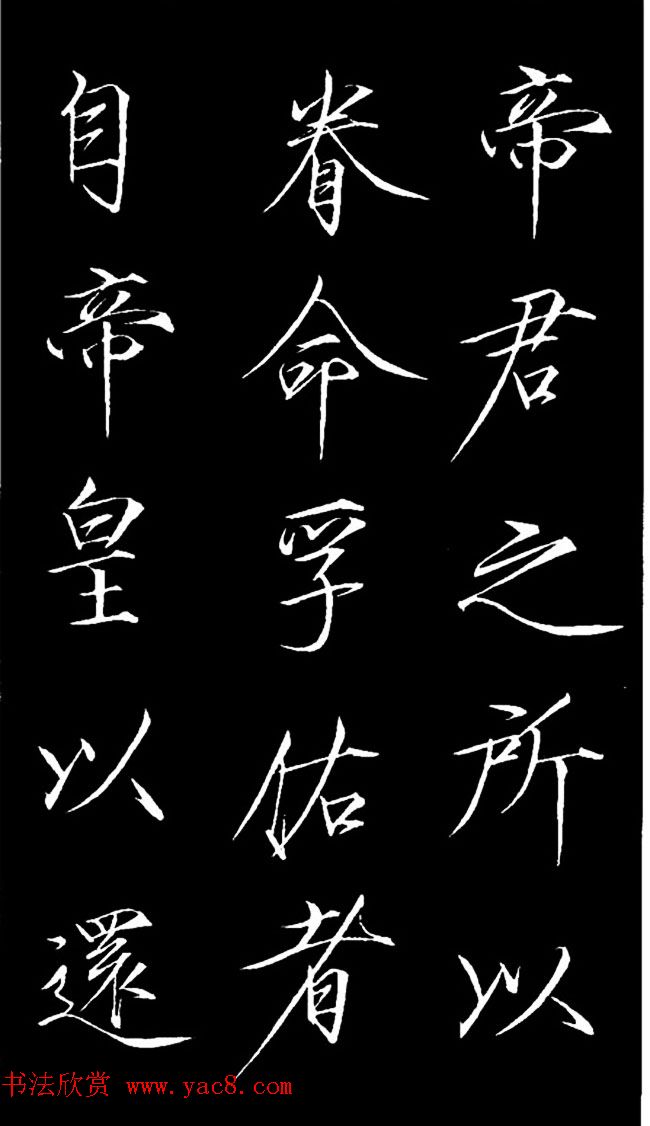 帝君之所以
眷命孚佑者
自帝皇以還
书法欣赏 www.yac8.com